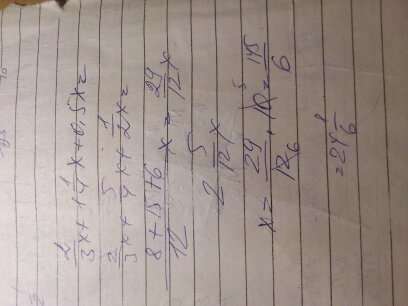 2/3 x + 1 1/4 x + 0,5x =
2/3 x + 5/4 x + 1/2 x =
8+15+6/12 x = 29/12 x
2 5/12 x
x = 29/12 · 10 = 145/6
= 24 1/6